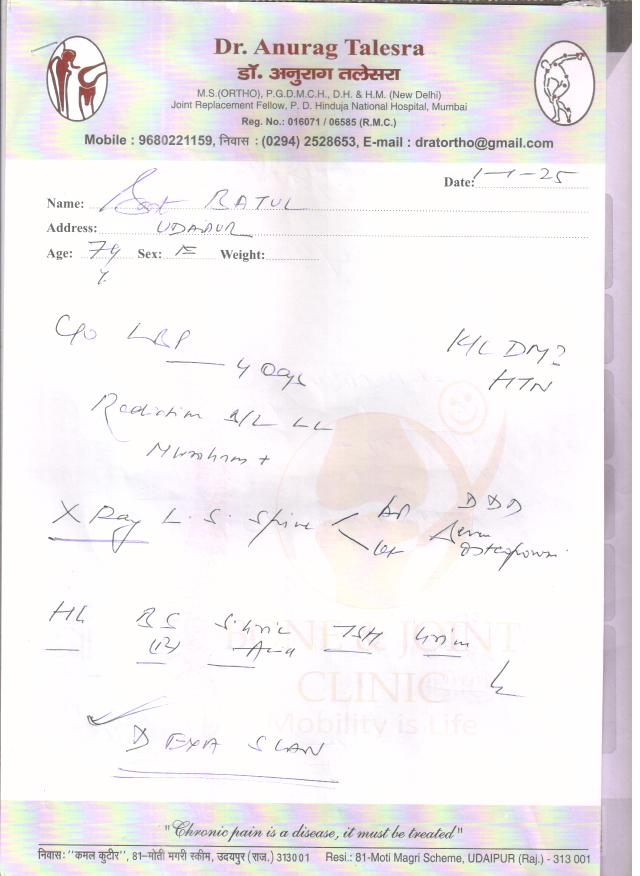 Dr. Anurag Talesra
डॉ. अनुराग तलेसरा
M.S.(ORTHO), P.G.D.M.C.H., D.H. & H.M. (New Delhi)
Joint Replacement Fellow, P. D. Hinduja National Hospital, Mumbai
Reg. No.: 016071 / 06585 (R.M.C.)
Mobile : 9680221159, निवास : (0294) 2528653, E-mail : dratortho@gmail.com
Date: 1-1-25
Name: BATUL
Address: UDAIPUR
Age: 74 Sex: F Weight:
y.
C/o LBP
4 Days
K/C DM?
HTN
Radiation B/L LL
Numbness +
X Ray L.S. Spine AP DDD
Lat Osteoporosis
BS S. Uric TSH Urine
(12) Acid
BONE & JOINT
CLINIC
Mobility is Life
DEXA SCAN
"Chronic pain is a disease, it must be treated"
निवास: "कमल कुटीर", 81-मोती मगरी स्कीम, उदयपुर (राज.) 313001 Resi.: 81-Moti Magri Scheme, UDAIPUR (Raj.) - 313 001